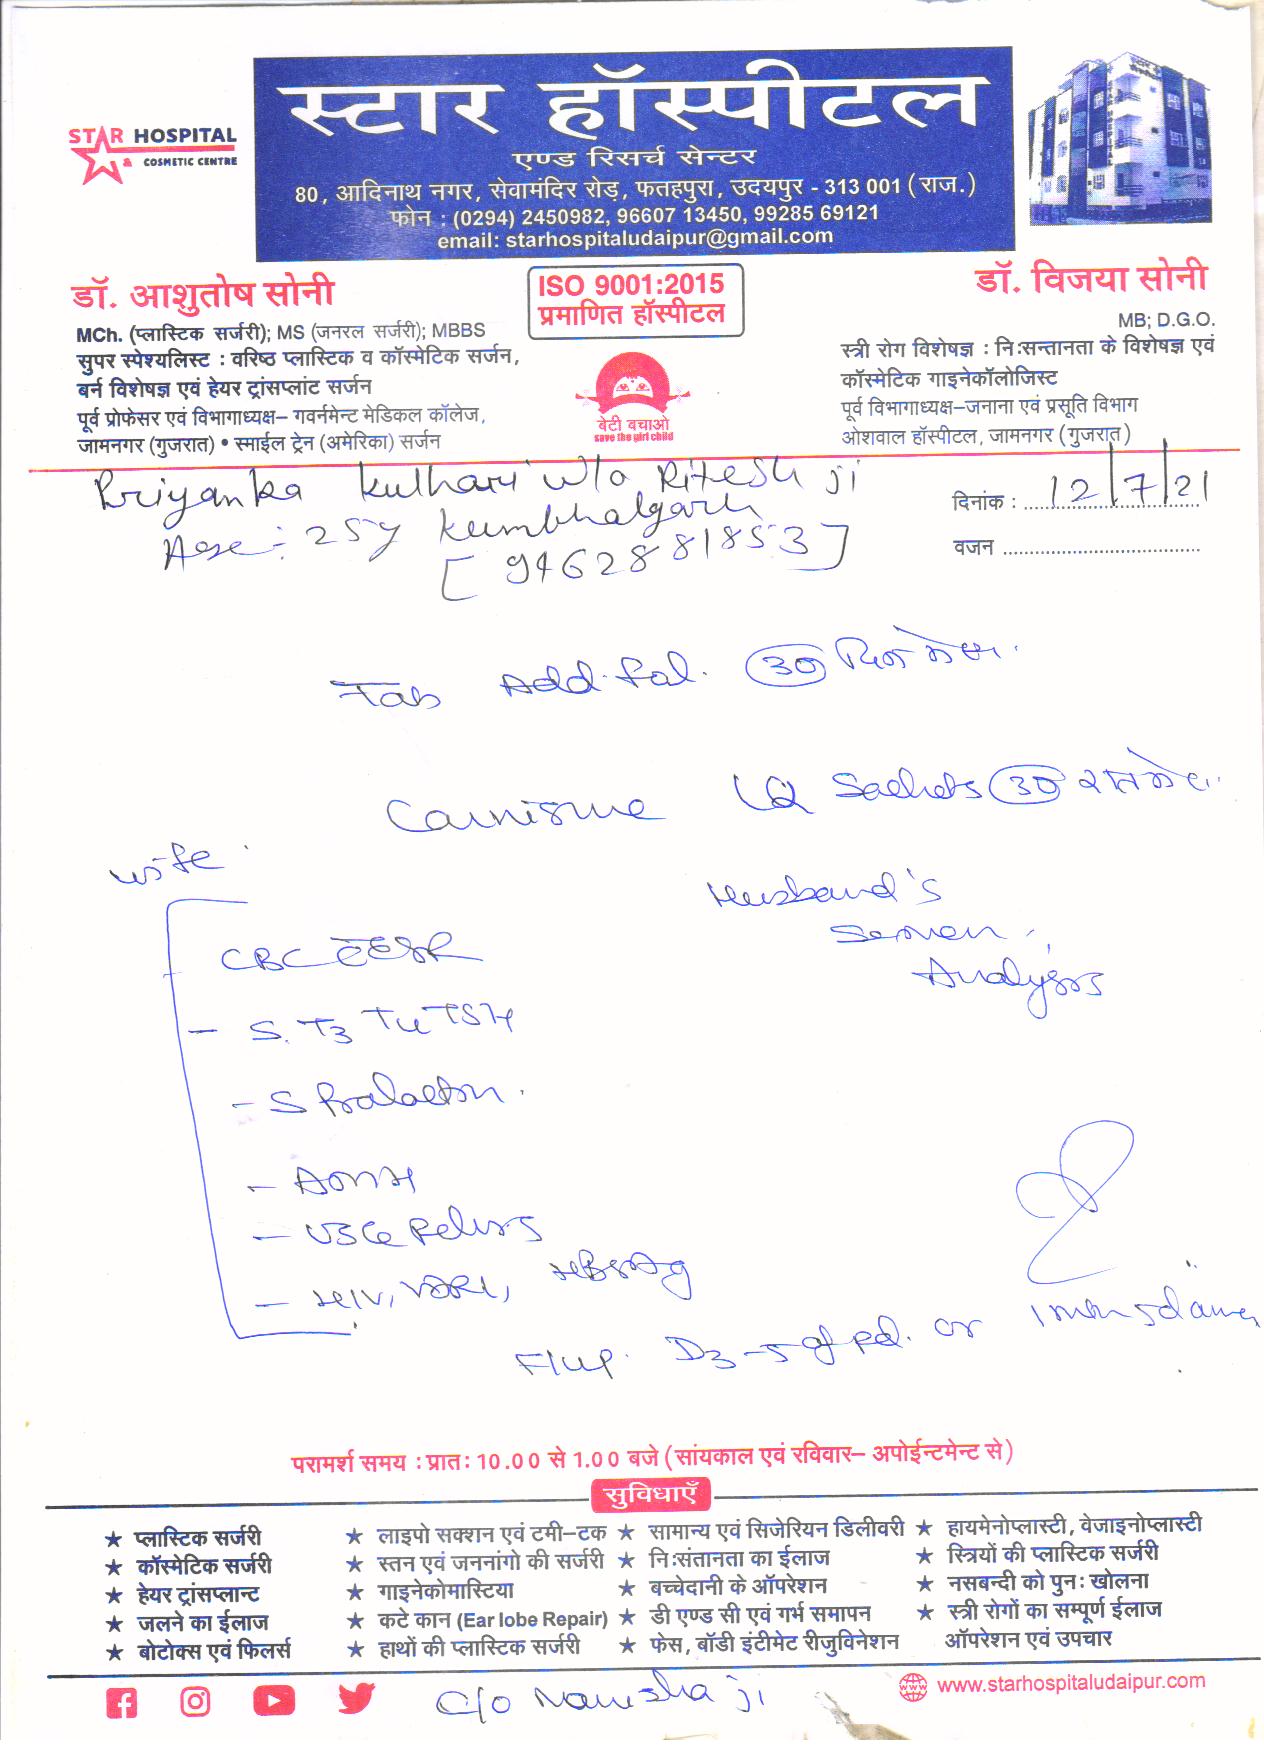 STAR HOSPITAL
& COSMETIC CENTRE
स्टार हॉस्पीटल
एण्ड रिसर्च सेन्टर
80, आदिनाथ नगर, सेवामंदिर रोड़, फतहपुरा, उदयपुर - 313 001 (राज.)
फोन : (0294) 2450982, 96607 13450, 99285 69121
email: starhospitaludaipur@gmail.com
डॉ. आशुतोष सोनी
MCh. (प्लास्टिक सर्जरी); MS (जनरल सर्जरी); MBBS
सुपर स्पेश्यलिस्ट : वरिष्ठ प्लास्टिक व कॉस्मेटिक सर्जन,
बर्न विशेषज्ञ एवं हेयर ट्रांसप्लांट सर्जन
पूर्व प्रोफेसर एवं विभागाध्यक्ष– गवर्नमेन्ट मेडिकल कॉलेज,
जामनगर (गुजरात) • स्माईल ट्रेन (अमेरिका) सर्जन
ISO 9001:2015
प्रमाणित हॉस्पीटल
बेटी बचाओ
save the girl child
डॉ. विजया सोनी
MB; D.G.O.
स्त्री रोग विशेषज्ञ : निःसन्तानता के विशेषज्ञ एवं
कॉस्मेटिक गाइनेकॉलोजिस्ट
पूर्व विभागाध्यक्ष–जनाना एवं प्रसूति विभाग
ओशवाल हॉस्पीटल, जामनगर (गुजरात)
Priyanka Kulhari w/o Ritesh ji
Age :- 25y Kumbhalgarh
[9462881853]
दिनांक : 12/7/21
वजन
Tab Add.fol. 30
Sachets 30
wife
Husband's
Semen
Analysis
CBC ESR
- S. T3 T4 TSH
- S Prolactin.
- AMH
- USG Pelvis
- HIV, VDRL, HBsAg
F/up. D3-5 of Pd. or
परामर्श समय : प्रातः 10.00 से 1.00 बजे (सांयकाल एवं रविवार– अपोईन्टमेन्ट से)
सुविधाएँ
★ प्लास्टिक सर्जरी ★ लाइपो सक्शन एवं टमी–टक ★ सामान्य एवं सिजेरियन डिलीवरी ★ हायमेनोप्लास्टी, वेजाइनोप्लास्टी
★ कॉस्मेटिक सर्जरी ★ स्तन एवं जननांगो की सर्जरी ★ निःसंतानता का ईलाज ★ स्त्रियों की प्लास्टिक सर्जरी
★ हेयर ट्रांसप्लान्ट ★ गाइनेकोमास्टिया ★ बच्चेदानी के ऑपरेशन ★ नसबन्दी को पुनः खोलना
★ जलने का ईलाज ★ कटे कान (Ear lobe Repair) ★ डी एण्ड सी एवं गर्भ समापन ★ स्त्री रोगों का सम्पूर्ण ईलाज
★ बोटोक्स एवं फिलर्स ★ हाथों की प्लास्टिक सर्जरी ★ फेस, बॉडी इंटीमेट रीजुविनेशन ऑपरेशन एवं उपचार
C/o Manisha ji
www.starhospitaludaipur.com